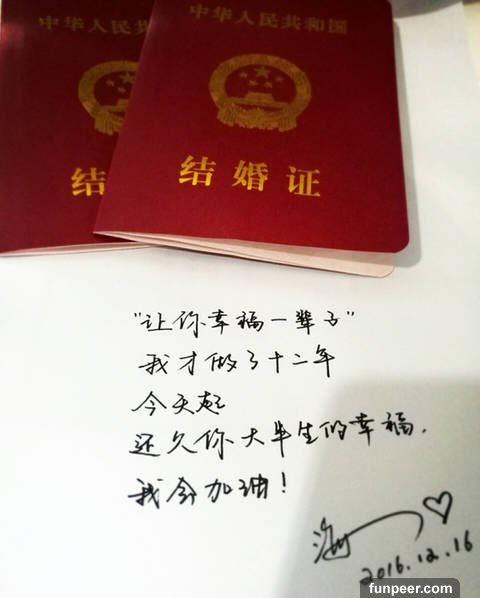 中华人民
中华人民共和国
结
结婚证
"让你幸福一辈子"
我才做了十二年
今天起
还久你大半生的幸福.
我会加油!
2016.12.16
funpeer.com